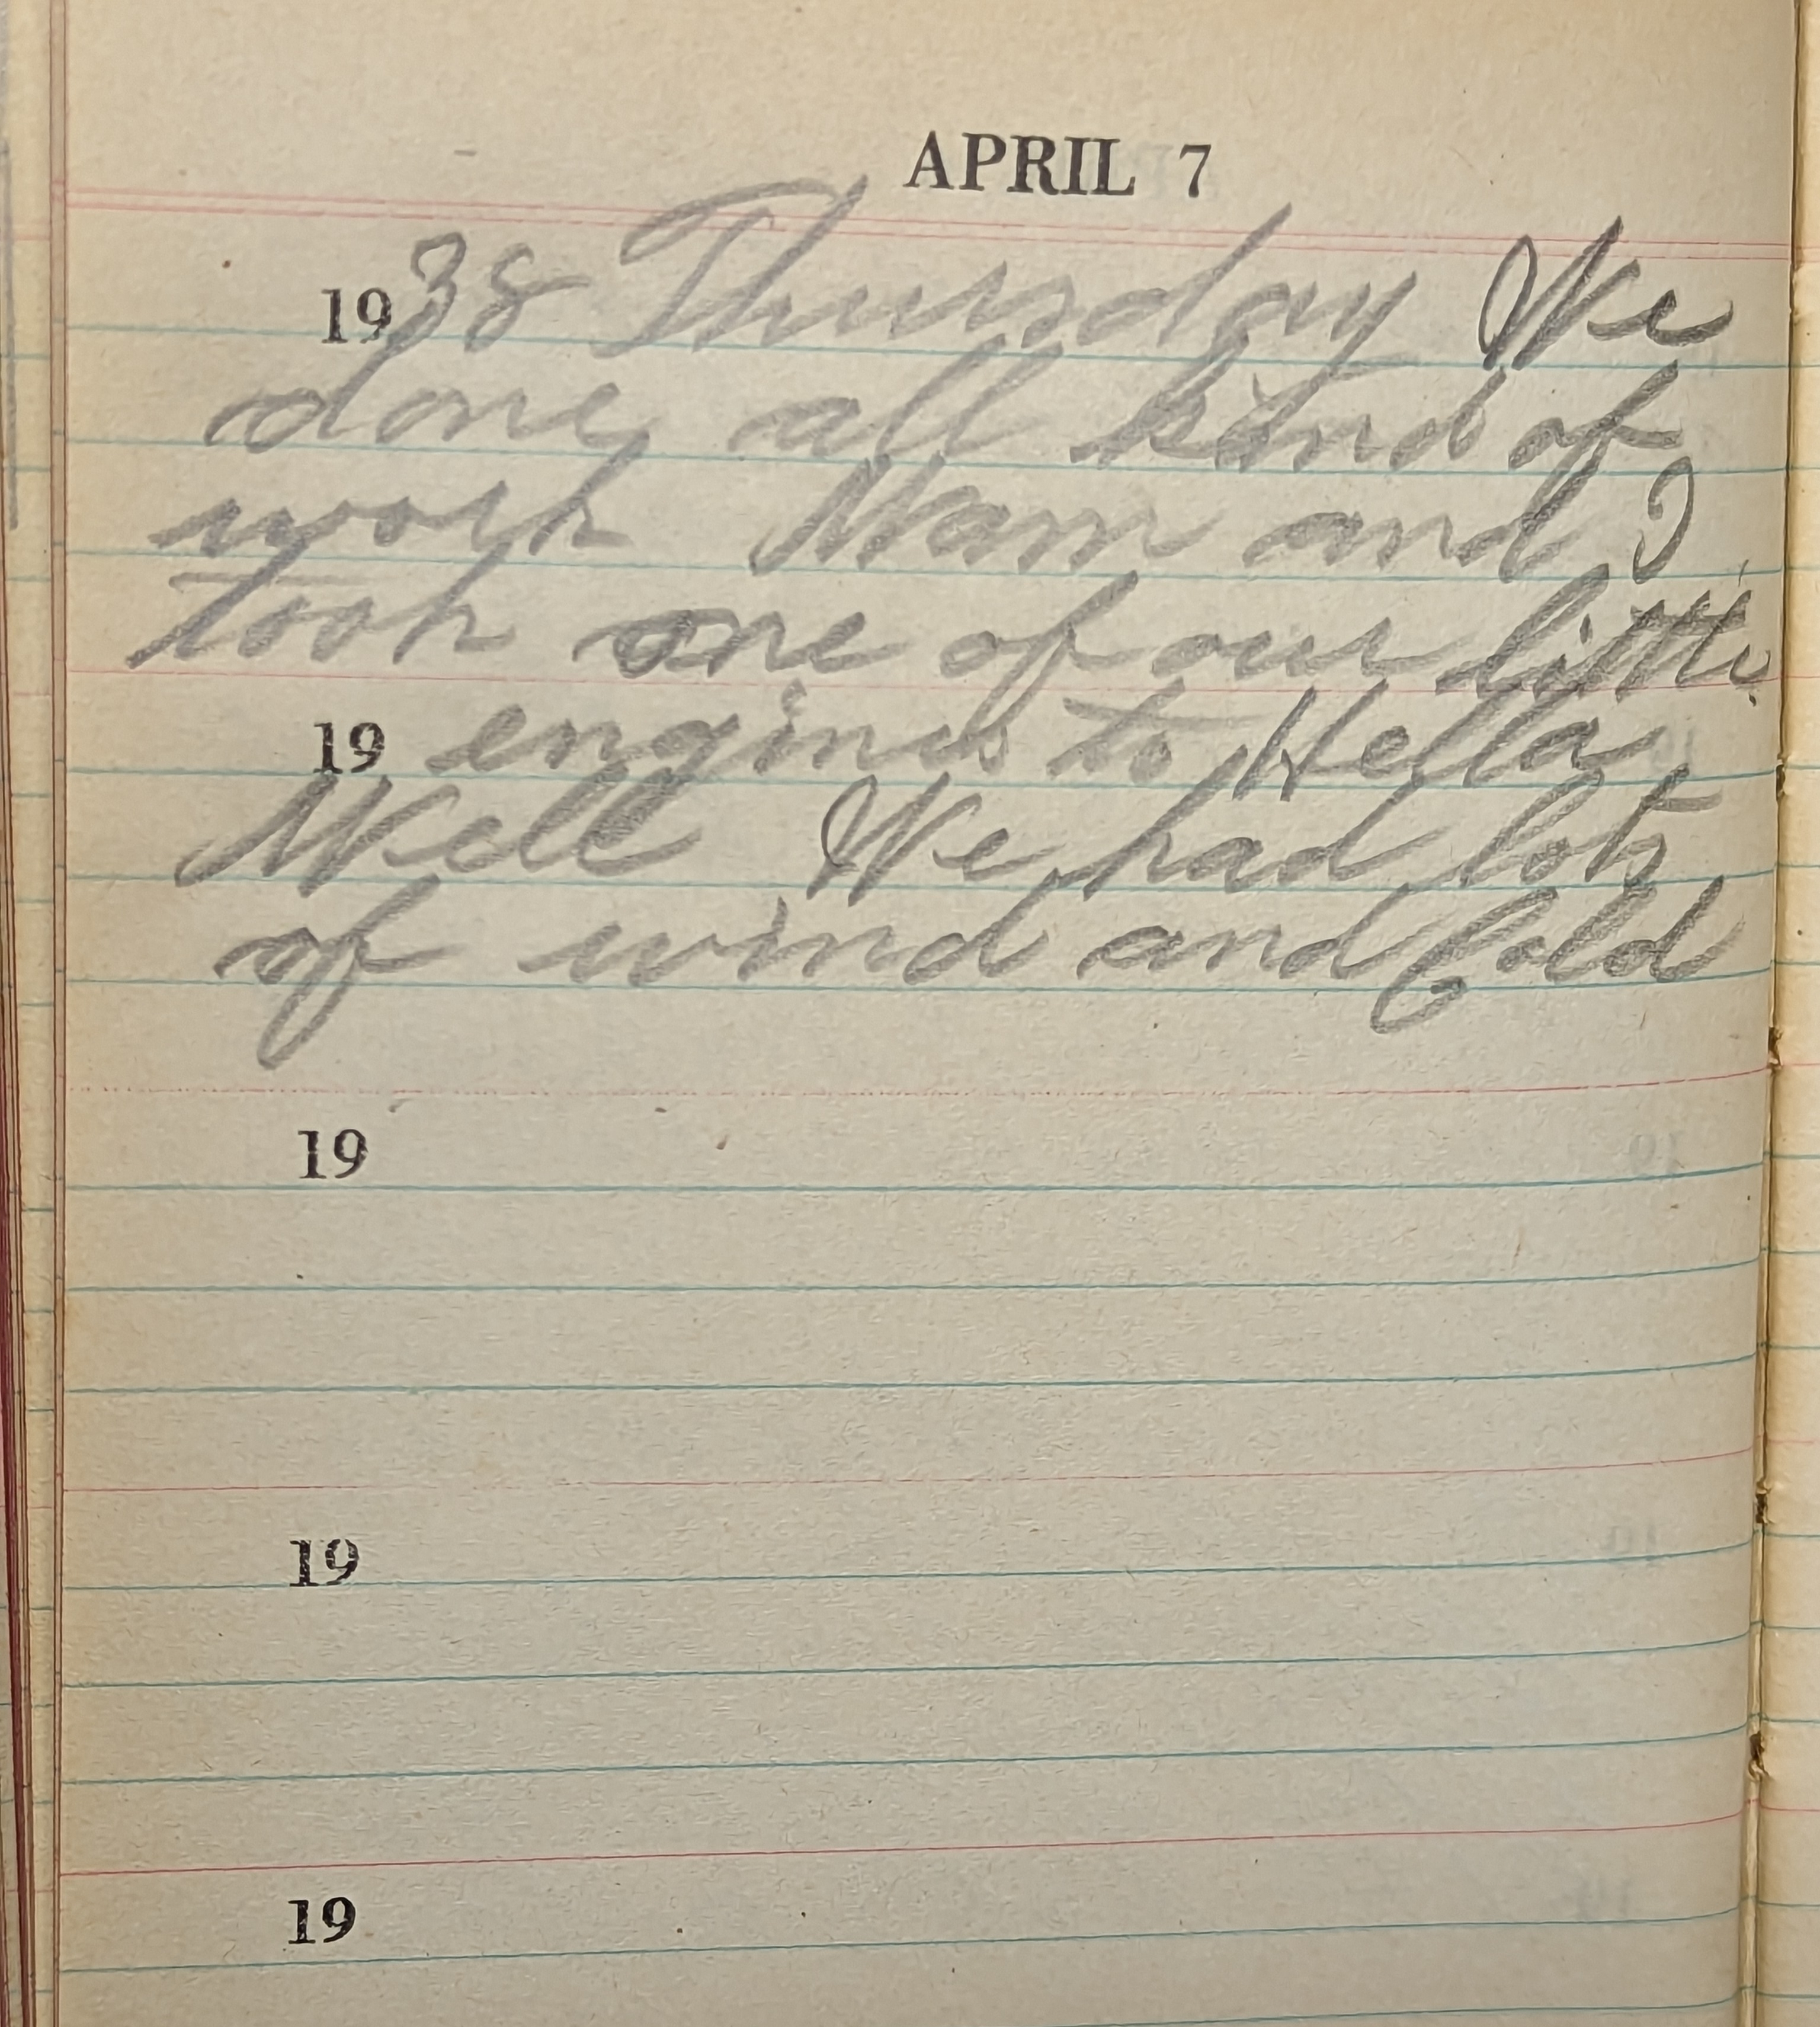 APRIL 7
1938 Thursday We
done all kind of
work Mam and I
took one of our little
19 engines to Hella
Well We had lots
of wind and Cold
19
19
19